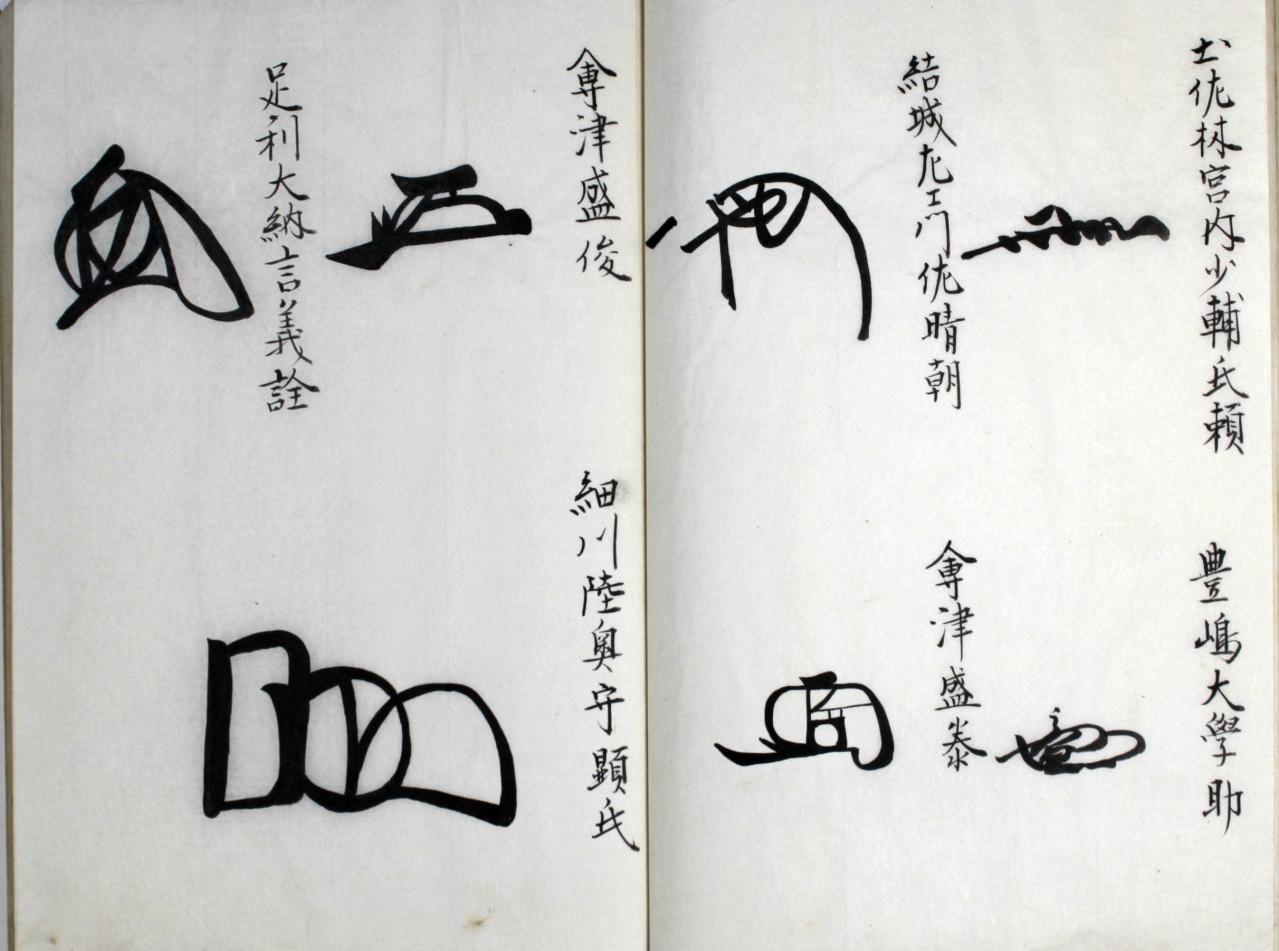 土佐林宮内少輔氏頼
豊嶋大學助
結城左エ門佐晴朝
會津盛泰
會津盛俊
細川陸奥守顕氏
足利大納言義詮